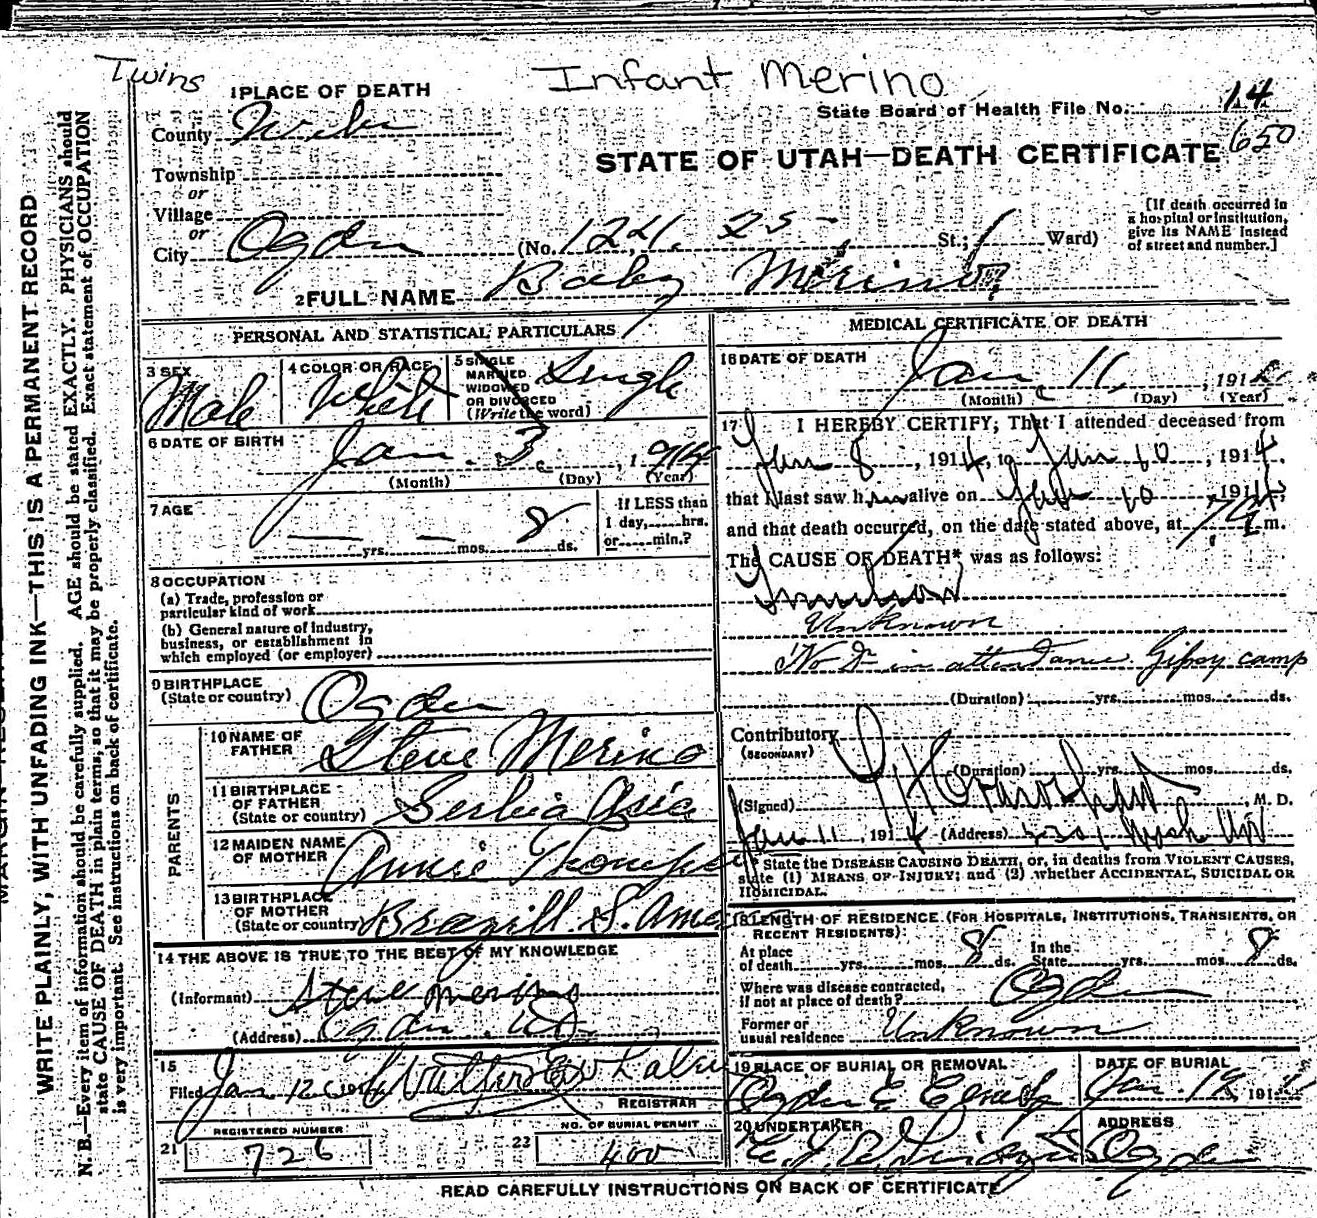 Twins
Infant Merino
1 PLACE OF DEATH
State Board of Health File No. 14
650
County Weber
STATE OF UTAH—DEATH CERTIFICATE
Township
or
Village
or
City Ogden (No. 1241. 25 St.; 1 Ward)
[If death occurred in a hospital or institution, give its NAME instead of street and number.]
2 FULL NAME Baby Merino
PERSONAL AND STATISTICAL PARTICULARS
3 SEX
Male
4 COLOR OR RACE
White
5 SINGLE
MARRIED
WIDOWED
OR DIVORCED
(Write the word)
Single
6 DATE OF BIRTH
Jan. 3, 1914
(Month) (Day) (Year)
7 AGE
— yrs. — mos. 8 ds.
If LESS than
1 day, hrs.
or min.?
8 OCCUPATION
(a) Trade, profession or
particular kind of work
(b) General nature of industry,
business, or establishment in
which employed (or employer)
9 BIRTHPLACE
(State or country) Ogden
PARENTS
10 NAME OF
FATHER Steve Merino
11 BIRTHPLACE
OF FATHER
(State or country) Serbia Asia
12 MAIDEN NAME
OF MOTHER Annie
13 BIRTHPLACE
OF MOTHER
(State or country) Brazill S. Ame
14 THE ABOVE IS TRUE TO THE BEST OF MY KNOWLEDGE
(Informant) Steve Merino
(Address) Ogden
15
Filed Jan 12
REGISTRAR
21 REGISTERED NUMBER
726
22 NO. OF BURIAL PERMIT
400
MEDICAL CERTIFICATE OF DEATH
16 DATE OF DEATH
Jan. 11, 191
(Month) (Day) (Year)
17 I HEREBY CERTIFY, That I attended deceased from
Jan 8, 1914, to Jan 10, 1914.
that I last saw h alive on Jan 10 1914,
and that death occurred, on the date stated above, at m.
The CAUSE OF DEATH* was as follows:
Unknown
No Dr in attendance Gipsy camp
(Duration) yrs. mos. ds.
Contributory
(SECONDARY)
(Duration) yrs. mos. ds.
(Signed) , M. D.
Jan 11, 1914 (Address) Wash
* State the DISEASE CAUSING DEATH, or, in deaths from VIOLENT CAUSES,
state (1) MEANS OF INJURY; and (2) whether ACCIDENTAL, SUICIDAL OR
HOMICIDAL.
18 LENGTH OF RESIDENCE (FOR HOSPITALS, INSTITUTIONS, TRANSIENTS, OR
RECENT RESIDENTS)
At place
of death yrs. mos. 8 ds.
In the
State yrs. mos. 8 ds.
Where was disease contracted,
if not at place of death? Ogden
Former or
usual residence Unknown
19 PLACE OF BURIAL OR REMOVAL
Ogden
DATE OF BURIAL
Jan. 191
20 UNDERTAKER
ADDRESS
Ogden
READ CAREFULLY INSTRUCTIONS ON BACK OF CERTIFICATE
WRITE PLAINLY, WITH UNFADING INK—THIS IS A PERMANENT RECORD
N. B.—Every item of information should be carefully supplied. AGE should be stated EXACTLY. PHYSICIANS should
state CAUSE OF DEATH in plain terms, so that it may be properly classified. Exact statement of OCCUPATION
is very important. See instructions on back of certificate.